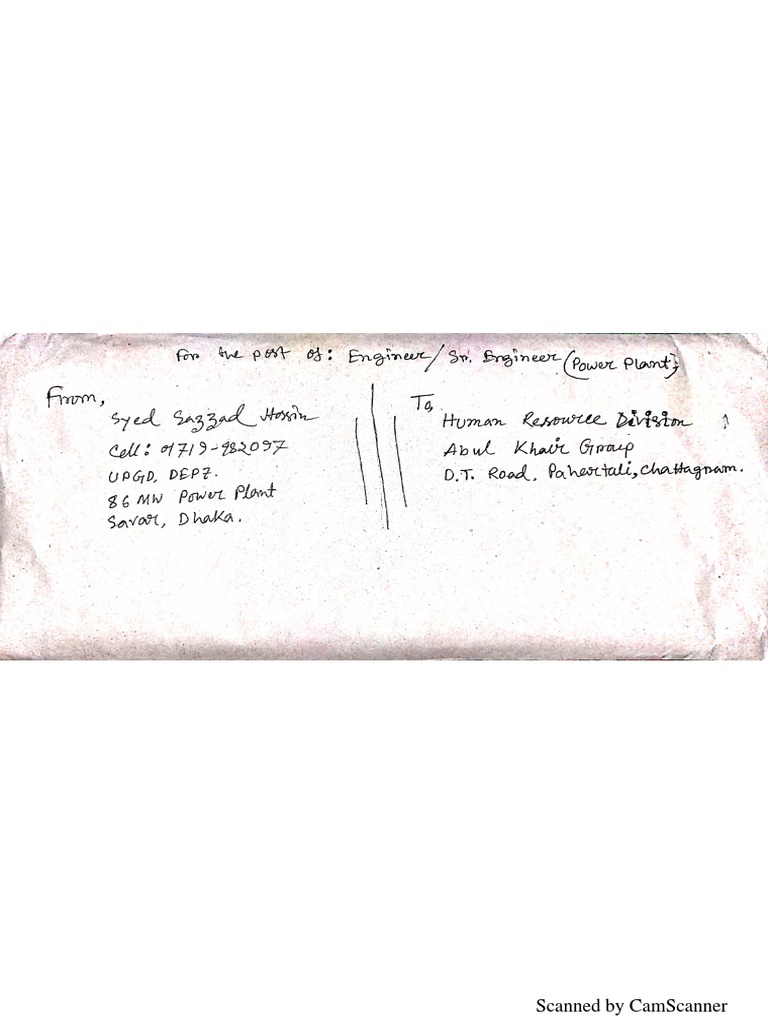 For the post of: Engineer/ Sr. Engineer (Power Plant)
From,
Syed Sazzad Hossin
Cell: 01719-982097
UPGD, DEPZ.
86 MW Power Plant
Savar, Dhaka.
To,
Human Resource Division
Abul Khair Group
D.T. Road, Pahartali, Chattagram.
Scanned by CamScanner